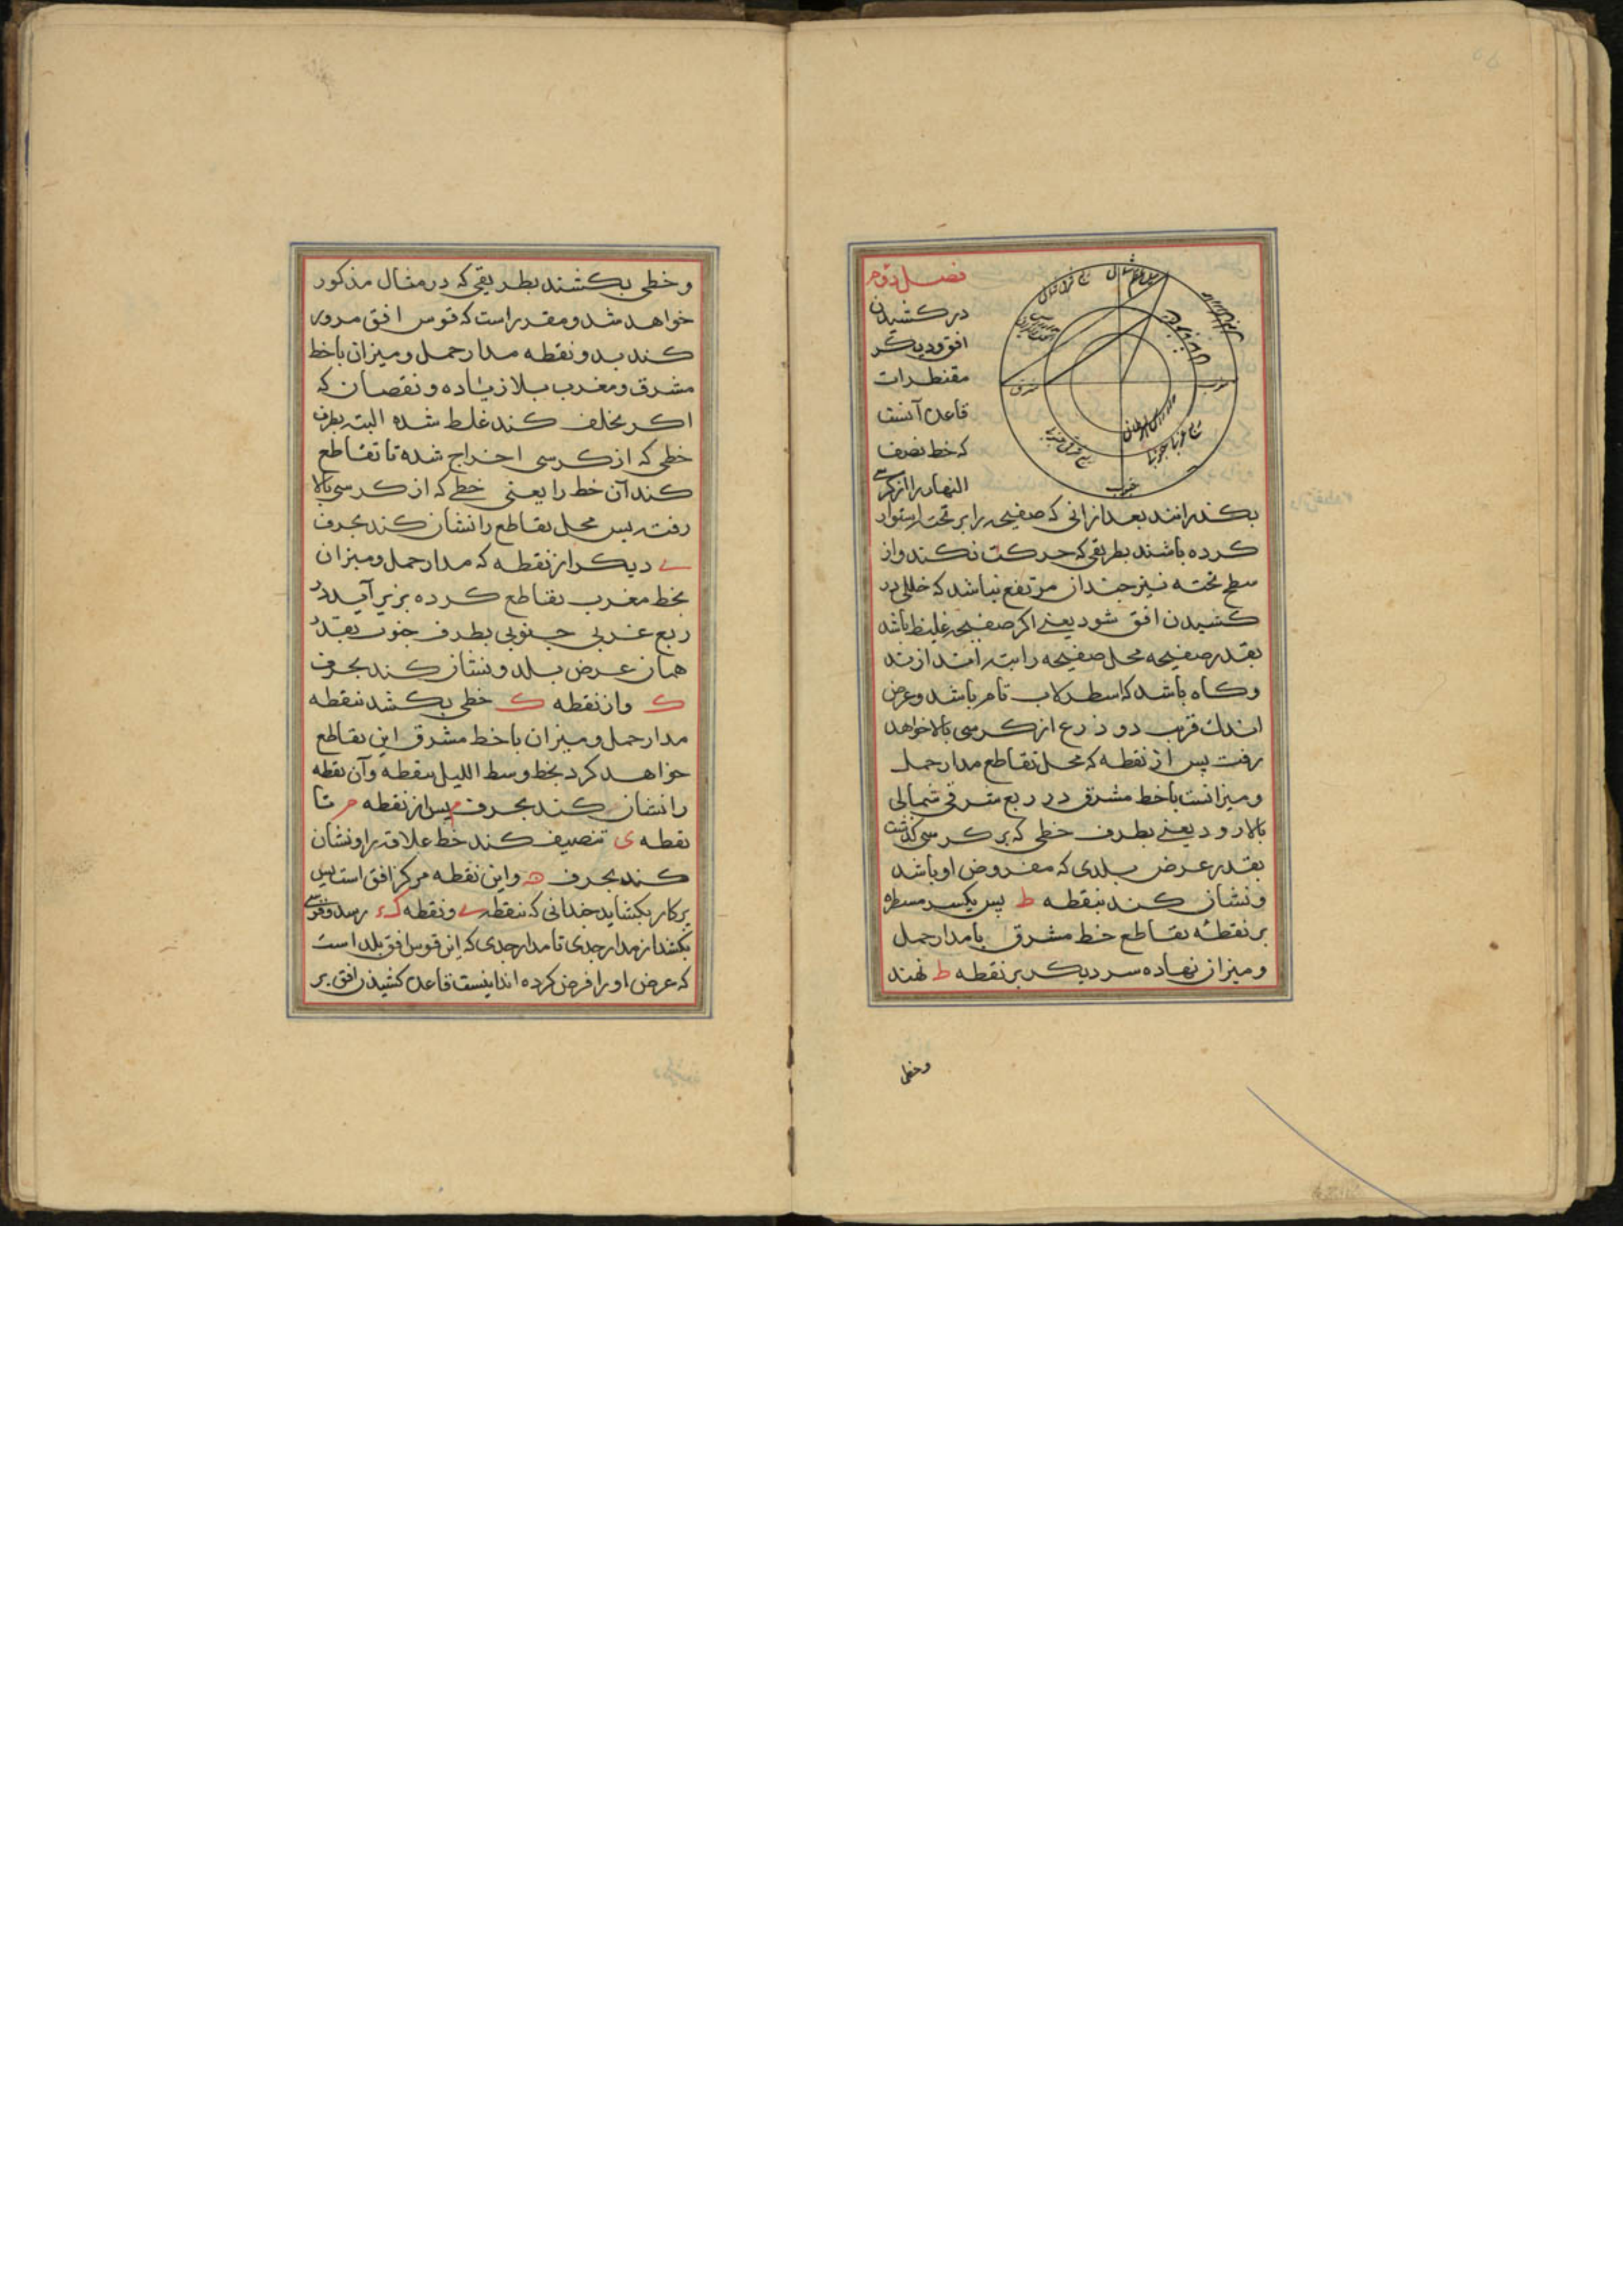 فصل دوم
در کشیدن
افق و دیگر
مقنطرات
قاعده آنست
که خط نصف
النهار را از کرسی
شمال
مشرق
مغرب
جنوب
بکذرانند بعد ازانی که صفیحه را بر تخته استوار
کرده باشند بطریقی که حرکت نکند و از
سطح تخته نیز چندان مرتفع نباشد که خللی در
کشیدن افق شود یعنی اکر صفیحه غلیظ باشد
بقدر صفیحه محل صفیحه را بتراشند از تخته
وکاه باشد که اسطرلاب تام باشد و عرض
اندك قریب دو ذرع از کرسی بالا خواهد
رفت پس از نقطه که محل تقاطع مدار حمل
و میزانست با خط مشرق در ربع شرقی شمالی
بالا رود یعنی بطرف خطی که بر کرسی کذشت
بقدر عرض بلدی که مفروض او باشد
و نشان کنند بنقطه ط پس یکسر مسطره
بر نقطه تقاطع خط مشرق با مدار حمل
و میزان نهاده سر دیکر بر نقطه ط نهند
وخطی
وخطی بکشند بطریقی که در مثال مذکور
خواهد شد و مقرر است که قوس افق مرور
کند بدو نقطه مدار حمل و میزان با خط
مشرق و مغرب بلا زیاده و نقصان که
اکر تخلف کند غلط شده البته بطرف
خطی که از کرسی اخراج شده تا تقاطع
کند آن خط را یعنی خطی که از کرسی بالا
رفته پس محل تقاطع را نشان کند بحرف
ی دیکر از نقطه که مدار حمل و میزان
بخط مغرب تقاطع کرده بزیر آید در
ربع غربی جنوبی بطرف جنوب بقدر
همان عرض بلد و نشان کند بحرف
ک و از نقطه ک خطی بکشد بنقطه
مدار حمل و میزان با خط مشرق این تقاطع
خواهد کرد بخط وسط اللیل بنقطه و آن نقطه
را نشان کند بحرف م پس از نقطه م تا
نقطه ی تنصیف کند خط علاقه را و نشان
کند بحرف ه و این نقطه مرکز افق است پس
پرکار بکشاید چندانی که بنقطه ی و نقطه رسد و قوسی
بکشد از مدار جدی تا مدار جدی که این قوس افق بلد است
که عرض او را فرض کرده اند اینست قاعده کشیدن افق بر